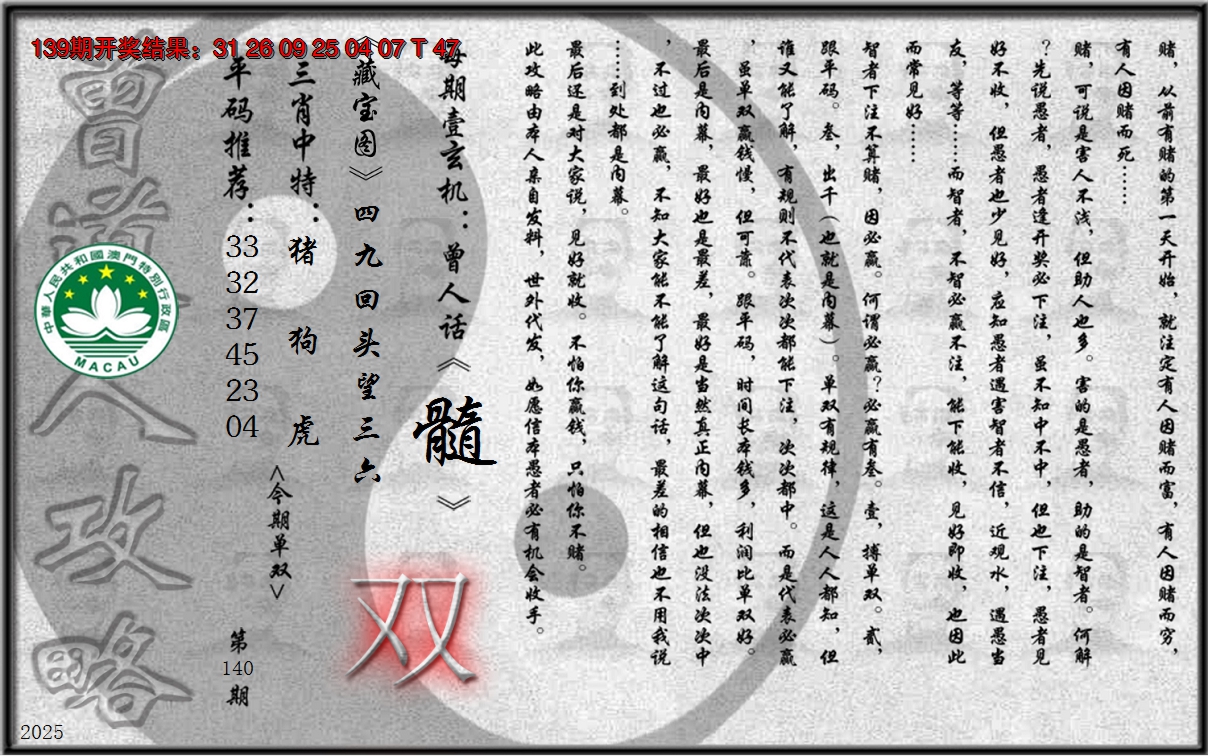 139期开奖结果：31 26 09 25 04 07 T 47
赌，从前有赌的第一天开始，就注定有人因赌而富，有人因赌而穷，
有人因赌而死……
赌，可说是害人不浅，但助人也多。害的是愚者，助的是智者。何解
？先说愚者，愚者逢开奖必下注，虽不知中不中，但也下注，愚者见
好不收，但愚者也少见好，应知愚者遇害智者不信，近观水，遇愚当
友，等等……而智者，不智必赢不注，能下能收，见好即收，也因此
而常见好……
智者下注不算赌，因必赢。何谓必赢？必赢有叁。壹，搏单双。贰，
跟平码。叁，出千（也就是内幕）。单双有规律，这是人人都知，但
谁又能了解，有规则不代表次次都能下注，次次都中。而是代表必赢
，虽单双赢钱慢，但可靠。跟平码，时间长本钱多，利润比单双好。
最后是内幕，最好也是最差，最好是当然真正内幕，但也没法次次中
，不过也必赢，不知大家能不能了解这句话，最差的相信也不用我说
……到处都是内幕。
最后还是对大家说，见好就收。不怕你赢钱，只怕你不赌。
此攻略由本人亲自发料，世外代发，如愿信本愚者必有机会收手。
每期壹玄机：曾人话《髓》
《藏宝图》四九回头望三六
双
三肖中特：猪 狗 虎
<今期单双>
平码推荐：
33
32
37
45
23
04
第
140
期
曾道人攻略
中華人民共和國澳門特別行政區
MACAU
2025